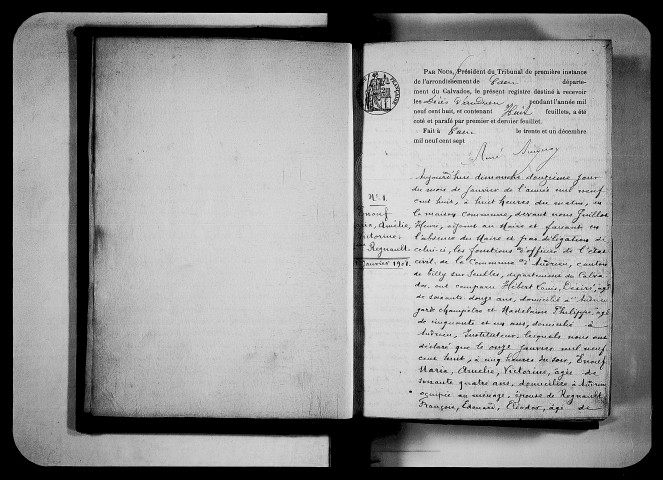 PAR NOUS, Président du Tribunal de première instance
de l'arrondissement de Caen département
du Calvados, le présent registre destiné à recevoir
les Décès d'Audrieu pendant l'année mil
neuf cent huit, et contenant Huit feuillets, a été
coté et parafé par premier et dernier feuillet.
Fait à Caen le trente et un décembre
mil neuf cent sept
N° 1.
Enouf
Maria, Amélie,
Victorine
Regnault
Janvier 1908.
Aujourd'hui dimanche douzième jour
du mois de janvier de l'année mil neuf
cent huit, à huit heures du matin, en
la maison commune, devant nous
Henri, adjoint au Maire et faisant en
l'absence du Maire et par délégation de
celui-ci, les fonctions d'officier de l'état
civil de la Commune d'Audrieu, canton
de Tilly sur Seulles, département du Calva-
dos, ont comparu Hébert Louis, Désiré, âgé
de soixante-douze ans, domicilié à Audrieu
garde champêtre et Madelaine Philippe, âgé
de cinquante et un ans, domicilié à
Audrieu, Instituteur, lesquels nous ont
déclaré que le onze janvier mil neuf
cent huit, à cinq heures du soir, Enouf
Maria, Amélie, Victorine, âgée de
soixante quatre ans, domiciliée à Audrieu
occupée au ménage, épouse de Regnault
François, Edouard, âgé de